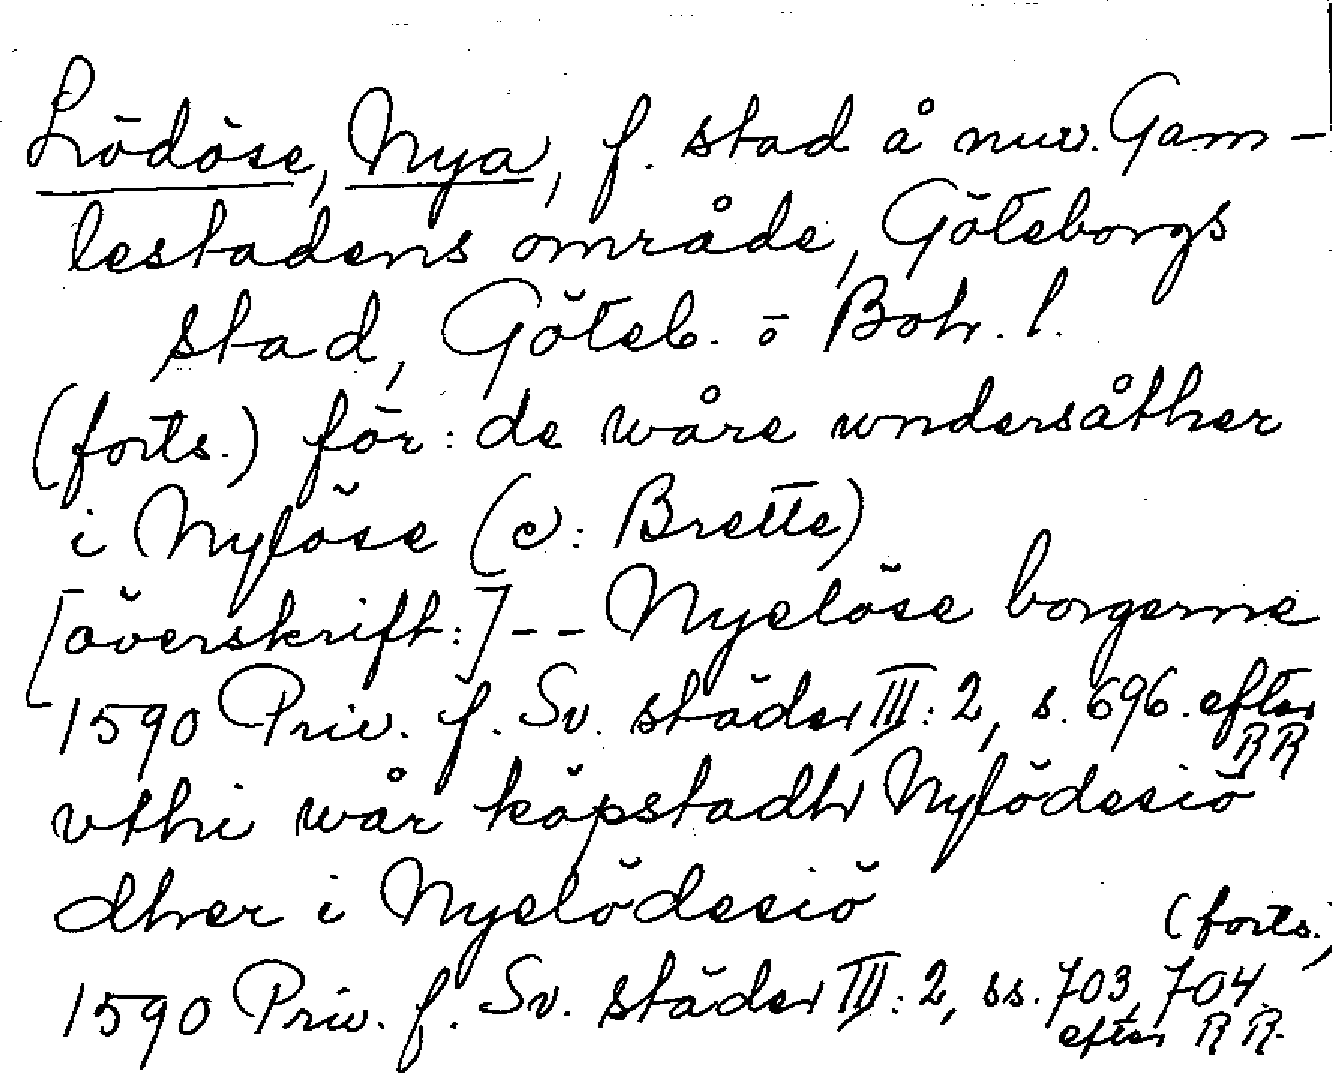 Lödöse, Nya, f. stad å nuv. Gam-
lestadens område, Göteborgs
stad, Göteb. o Boh. l.
(forts.) för: de wåre wndersåther
i Nylöse (c: Brette)
[överskrift:] -- Nyelöse borgerne
1590 Priv. f. Sv. städer III: 2, s. 696. efter
RR
vthi wår köpstadh Nylödesiö
dher i Nyelödesiö
(forts.)
1590 Priv. f. Sv. städer III: 2, ss. 703, 704
efter RR.